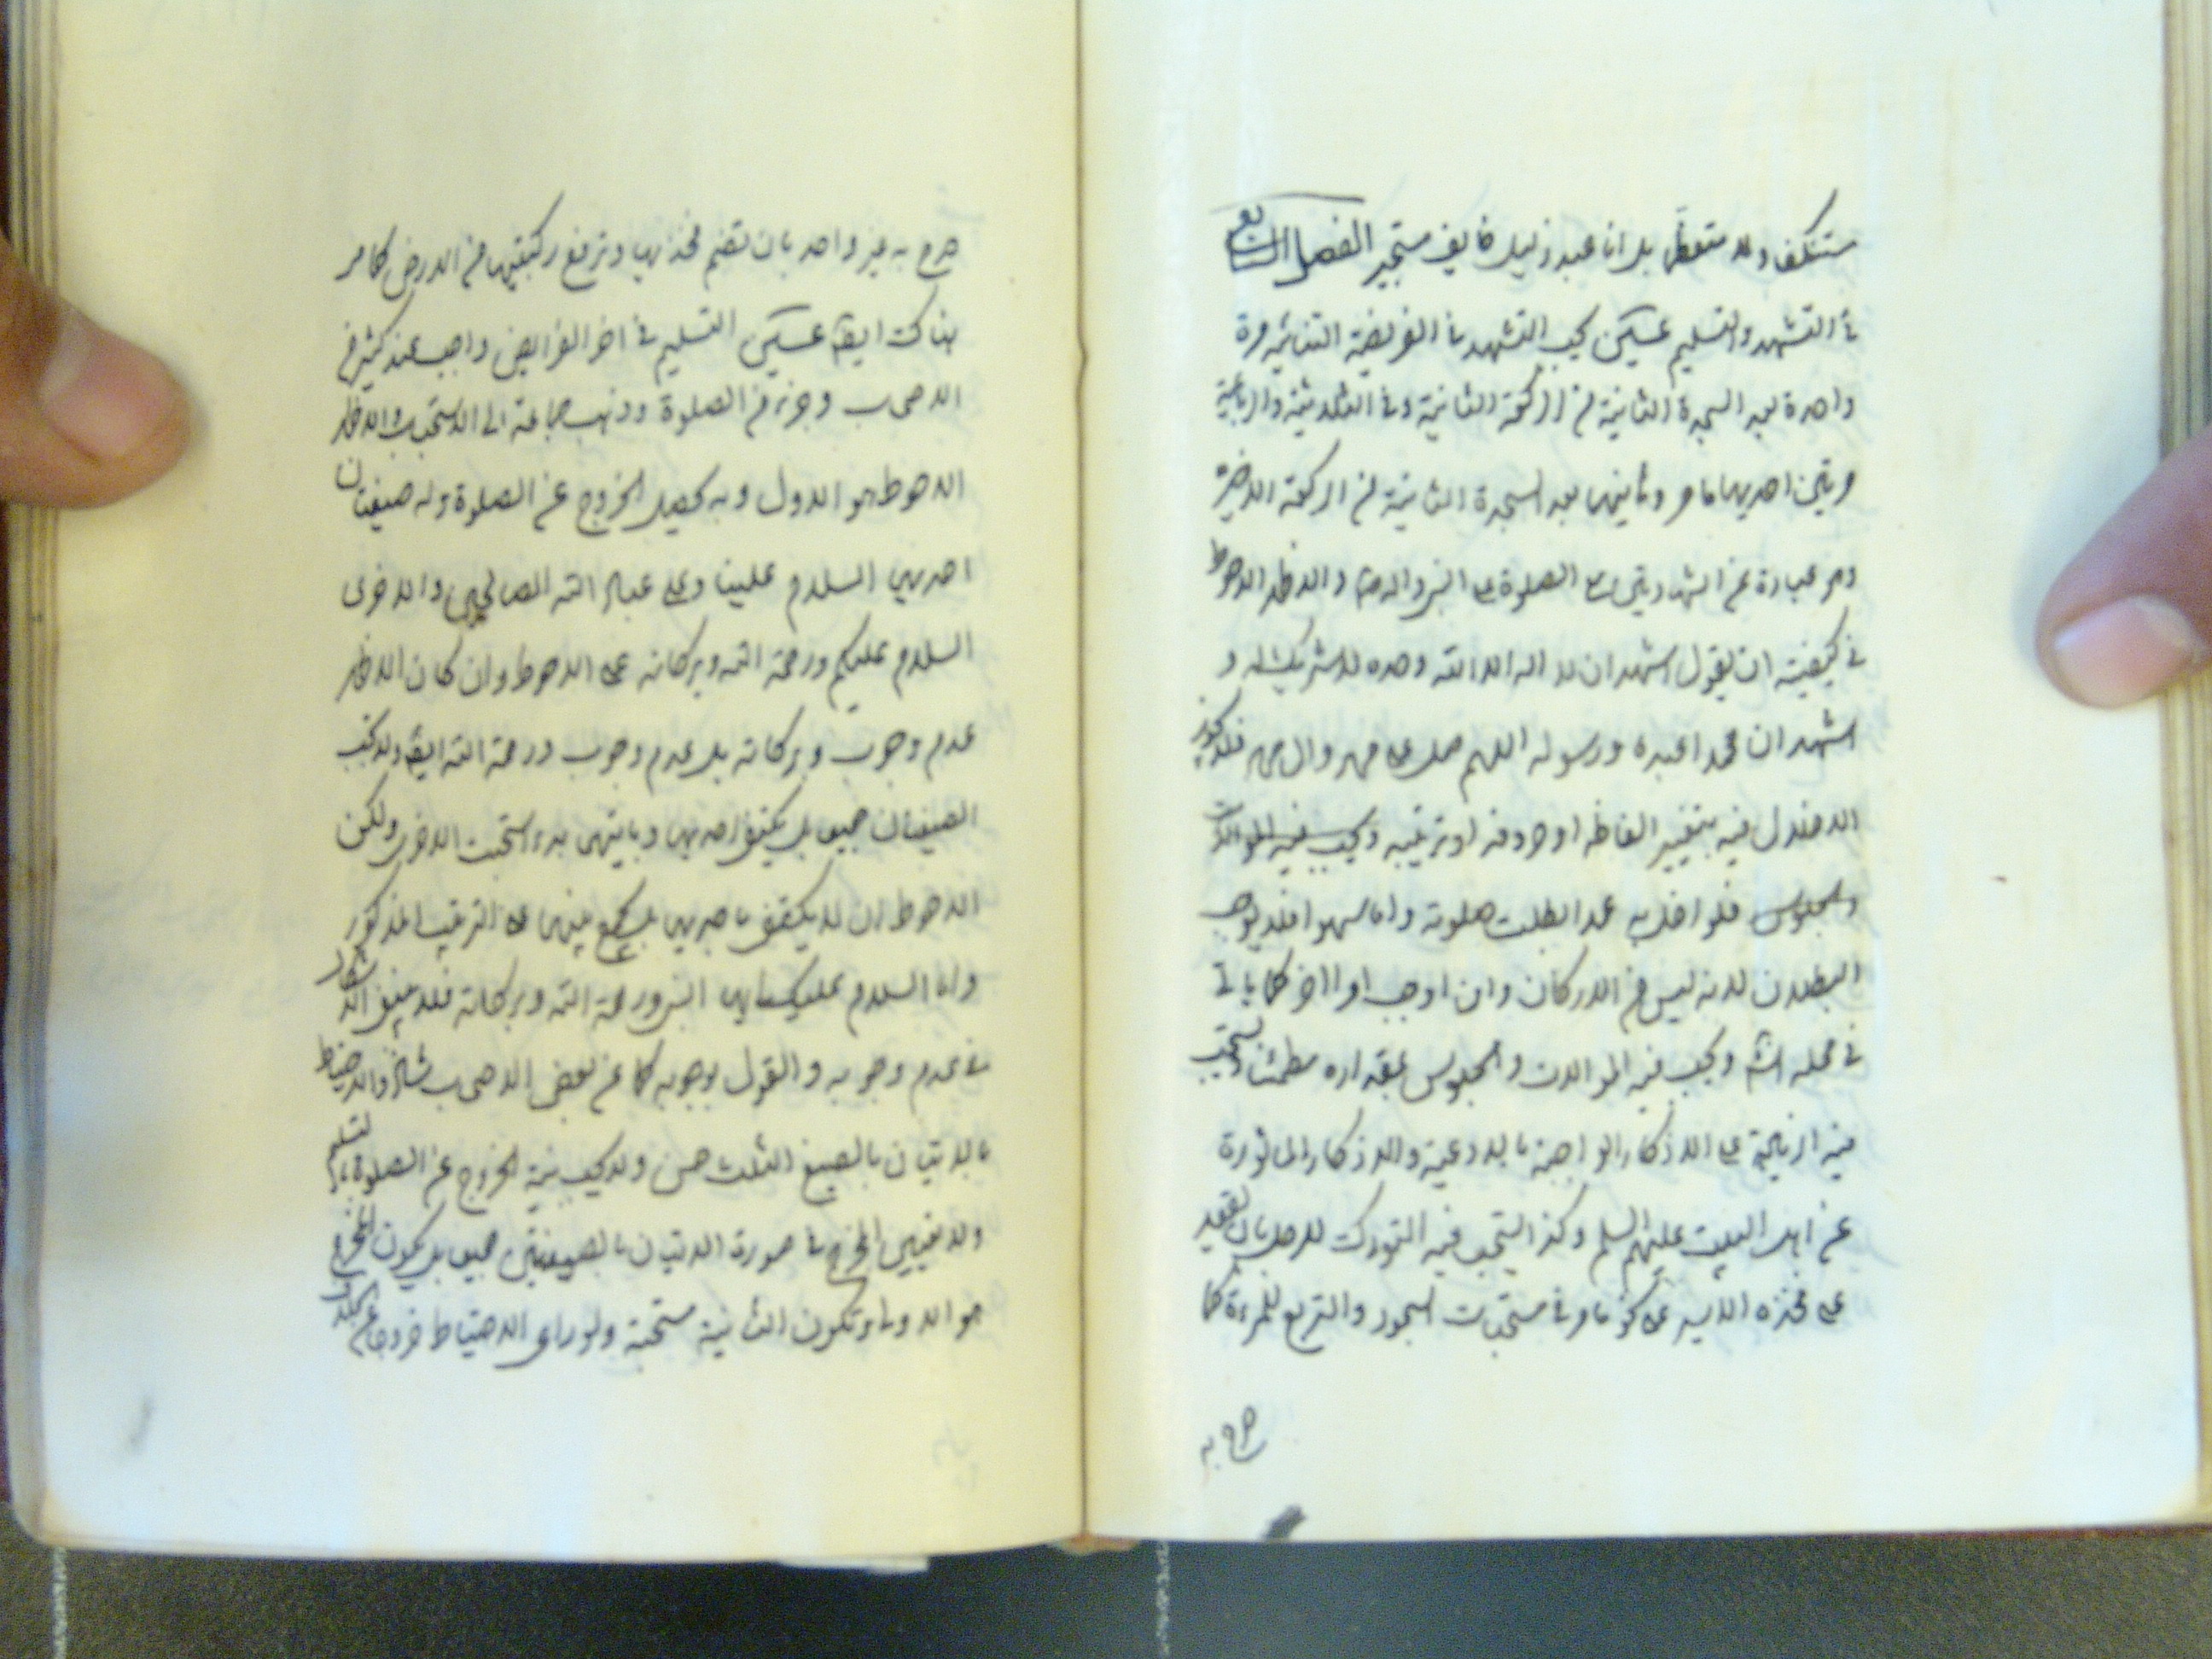 مستنكف ولا متعظم بل انا عبد ذليل خايف مستجير الفصل السابع
في التشهد والتسليم يجب التشهد في الفريضة الثنائية مرة
واحدة بعد السجدة الثانية من الركعة الثانية وفي الثلاثية والرباعية
مرتين احديهما ما مر وثانيهما بعد السجدة الثانية من الركعة الاخيرة
وهو عبارة عن الشهادتين ثم الصلوة على النبي واله والاظهر الاحوط
في كيفيته ان يقول اشهد ان لا اله الا الله وحده لا شريك له و
اشهد ان محمدا عبده ورسوله اللهم صل على محمد وال محمد فلا يجوز
الاخلال فيه بتغيير الفاظه او حروفه او ترتيبه ويجب فيه الموالات
والجلوس فلو اخل به عمدا بطلت صلوته واما سهوا فلا يوجب
البطلان لانه ليس من الاركان وان اوجب امرا اخر كما ياتي
في محله انش ويجب فيه الموالات والجلوس بمقداره مطمئنا ويستحب
فيه الزيادة على الاذكار الواجبة بالادعية والاذكار الماثورة
عن اهل البيت عليهم السلم وكذا يستحب فيه التورك للرجل بان يقعد
على فخذه الايسر على نحو ما مر في مستحبات السجود والتربع للمرءة كما
صرح به
صرح به غير واحد بان تضم فخذيها وترفع ركبتيها من الارض كما مر
هناك ايضا التسليم في اخر الفرايض واجب عند كثير من
الاصحاب وجزء من الصلوة وذهب جماعة الى الاستحباب والاظهر
الاحوط هو الاول وبه يحصل الخروج عن الصلوة وله صيغتان
احديهما السلام علينا وعلى عباد الله الصالحين والاخرى
السلام عليكم ورحمة الله وبركاته على الاحوط وان كان الاظهر
عدم وجوب وبركاته بل عدم وجوب ورحمة الله ايضا ولا يجب
الصيغتان جميعا بل يكتفى باحديهما وبايتهما بدء استحبت الاخرى ولكن
الاحوط ان لا يكتفى باحديهما بل يجمع بينهما على الترتيب المذكور
واما السلام عليك ايها النبي ورحمة الله وبركاته فلا ينبغي الاشكال
في عدم وجوبه والقول بوجوبه كما عن بعض الاصحاب شاذ والاحتياط
بالاتيان بالصيغ الثلث حسن ولا يجب نية الخروج عن الصلوة بالتسليم
ولا تعيين المخرج في صورة الاتيان بالصيغتين جميعا بل يكون المخرج
هو الاولى وتكون الثانية مستحبة ولو راعى الاحتياط خروجا عن الخلاف